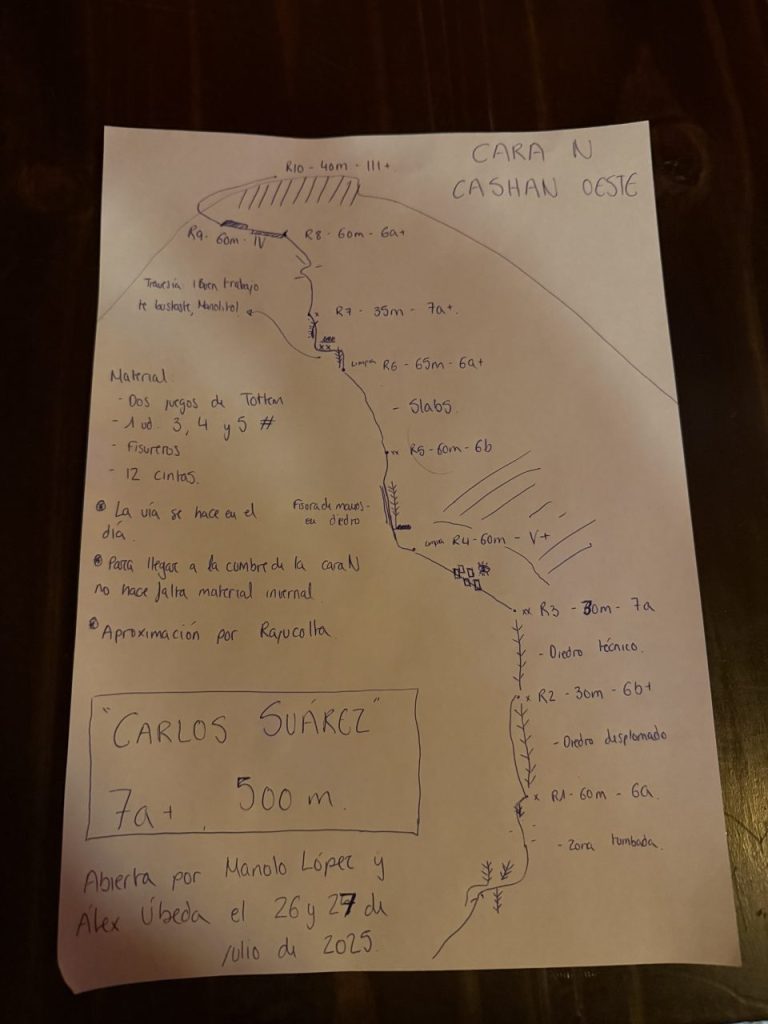 CARA N
CASHAN OESTE
R10 - 40m - III+
R9 - 60m - IV
R8 - 60m - 6a+
Travesía ¡Buen trabajo
te buscaste, Manolito!
R7 - 35m - 7a+
R6 - 65m - 6a+
- Slabs
xx R5 - 60m - 6b
Fisura de manos
en diedro
R4 - 60m - V+
xx R3 - 30m - 7a
- Diedro técnico.
x R2 - 30m - 6b+
- Diedro desplomado
x R1 - 60m - 6a
- Zona tumbada.
Material:
- Dos juegos de Tottem
- 1 ud. 3, 4 y 5 #
- Fisureros
- 12 cintas.
La vía se hace en el
día.
Para llegar a la cumbre de la cara N
no hace falta material invernal
Aproximación por Rajucolta.
"CARLOS SUÁREZ"
7a+, 500 m.
Abierta por Manolo López y
Álex Úbeda el 26 y 27 de
julio de 2025